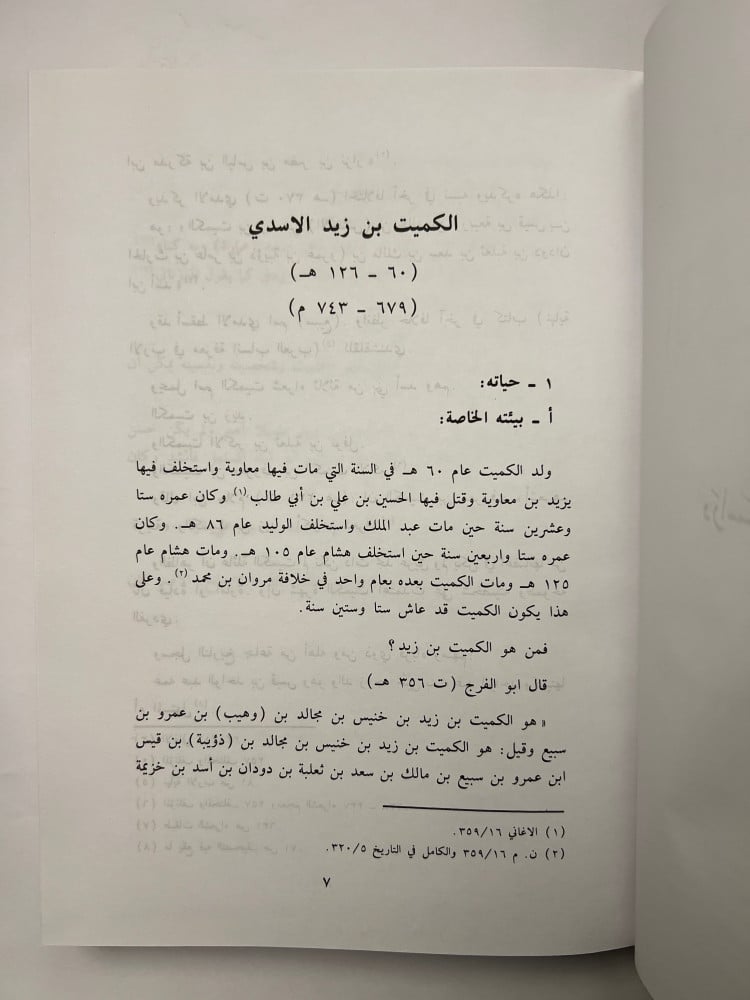 الكميت بن زيد الاسدي
(٦٠ ـ ١٢٦ هـ)
(٦٧٩ ـ ٧٤٣ م)
١ ـ حياته:
أ ـ بيئته الخاصة:
ولد الكميت عام ٦٠ هـ في السنة التي مات فيها معاوية واستخلف فيها
يزيد بن معاوية وقتل فيها الحسين بن علي بن أبي طالب(١) وكان عمره ستا
وعشرين سنة حين مات عبد الملك واستخلف الوليد عام ٨٦ هـ. وكان
عمره ستا واربعين سنة حين استخلف هشام عام ١٠٥ هـ. ومات هشام عام
١٢٥ هـ ومات الكميت بعده بعام واحد في خلافة مروان بن محمد(٢). وعلى
هذا يكون الكميت قد عاش ستا وستين سنة.
فمن هو الكميت بن زيد؟
قال ابو الفرج (ت ٣٥٦ هـ)
«هو الكميت بن زيد بن خنيس بن مجالد بن (وهيب) بن عمرو بن
سبيع وقيل: هو الكميت بن زيد بن خنيس بن مجالد بن (ذؤيبة) بن قيس
ابن عمرو بن سبيع بن مالك بن سعد بن ثعلبة بن دودان بن أسد بن خزيمة
(١) الاغاني ٣٥٩/١٦.
(٢) ن. م ٣٥٩/١٦ والكامل في التاريخ ٣٢٠/٥.
٧